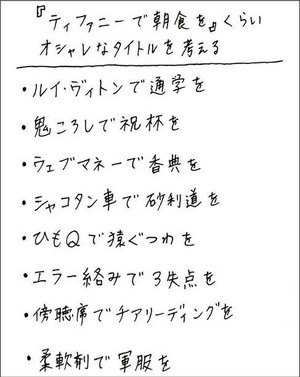 『ティファニーで朝食を』くらい
オシャレなタイトルを考える
・ルイ・ヴィトンで通学を
・鬼ころしで祝杯を
・ウェブマネーで香典を
・シャコタン車で砂利道を
・ひもQで猿ぐつわを
・エラー絡みで3失点を
・傍聴席でチアリーディングを
・柔軟剤で軍服を